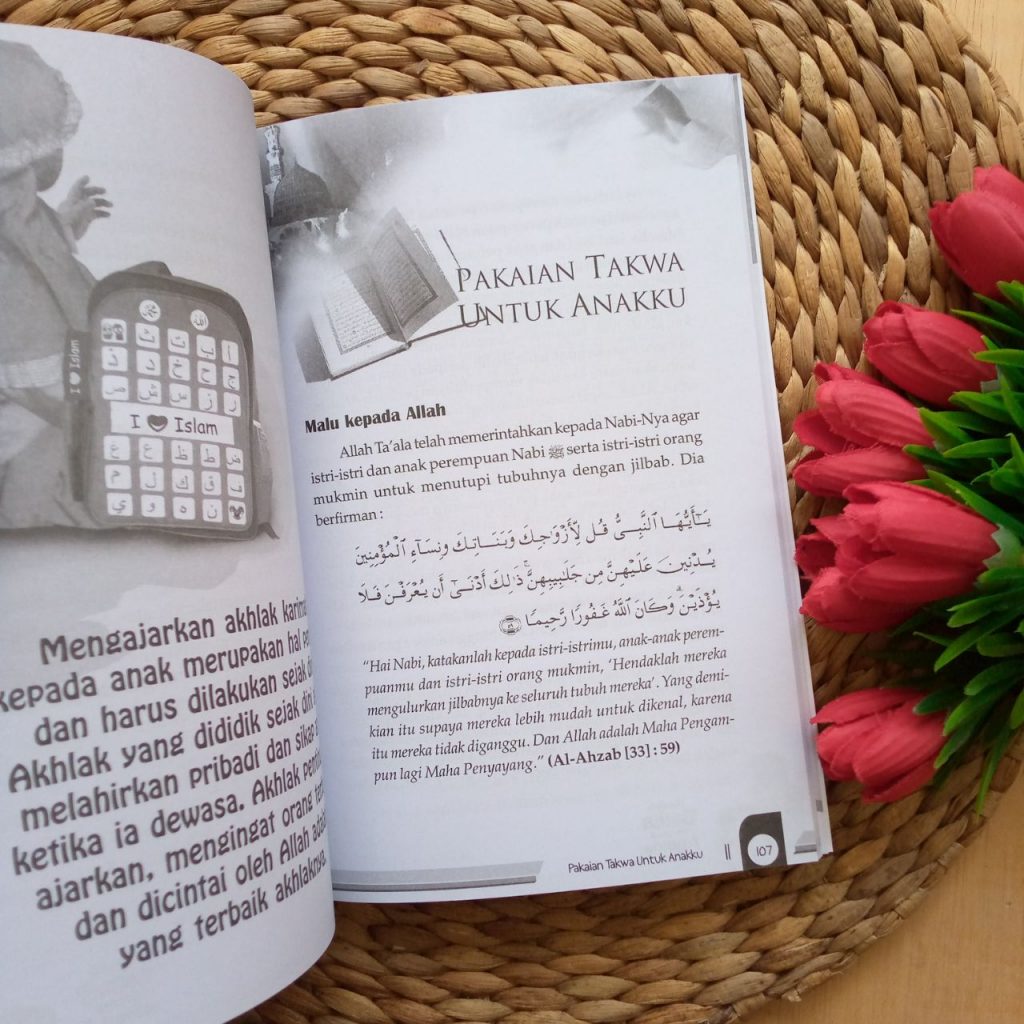 محمد الله
ا ب ت ث
ج ح خ د ذ
ر ز س ش ص
I Islam
I Islam
ض ط ظ ع غ
ف ق ك ل م
ن ه و ي
Mengajarkan akhlak
kepada anak merupakan hal
dan harus dilakukan sejak
Akhlak yang dididik sejak dini
melahirkan pribadi dan
ketika ia dewasa. Akhlak
ajarkan, mengingat orang
dan dicintai oleh Allah
yang terbaik akhlaknya.
PAKAIAN TAKWA
UNTUK ANAKKU
Malu kepada Allah
Allah Ta’ala telah memerintahkan kepada Nabi-Nya agar
istri-istri dan anak perempuan Nabi ﷺ serta istri-istri orang
mukmin untuk menutupi tubuhnya dengan jilbab. Dia
berfirman :
يَـٰٓأَيُّهَا ٱلنَّبِىُّ قُل لِّأَزْوَٰجِكَ وَبَنَاتِكَ وَنِسَآءِ ٱلْمُؤْمِنِينَ
يُدْنِينَ عَلَيْهِنَّ مِن جَلَـٰبِيبِهِنَّ ۚ ذَٰلِكَ أَدْنَىٰٓ أَن يُعْرَفْنَ فَلَا
يُؤْذَيْنَ ۗ وَكَانَ ٱللَّهُ غَفُورًا رَّحِيمًا ۝٥٩
“Hai Nabi, katakanlah kepada istri-istrimu, anak-anak perem-
puanmu dan istri-istri orang mukmin, ‘Hendaklah mereka
mengulurkan jilbabnya ke seluruh tubuh mereka’. Yang demi-
kian itu supaya mereka lebih mudah untuk dikenal, karena
itu mereka tidak diganggu. Dan Allah adalah Maha Pengam-
pun lagi Maha Penyayang.” (Al-Ahzab [33] : 59)
Pakaian Takwa Untuk Anakku || 107